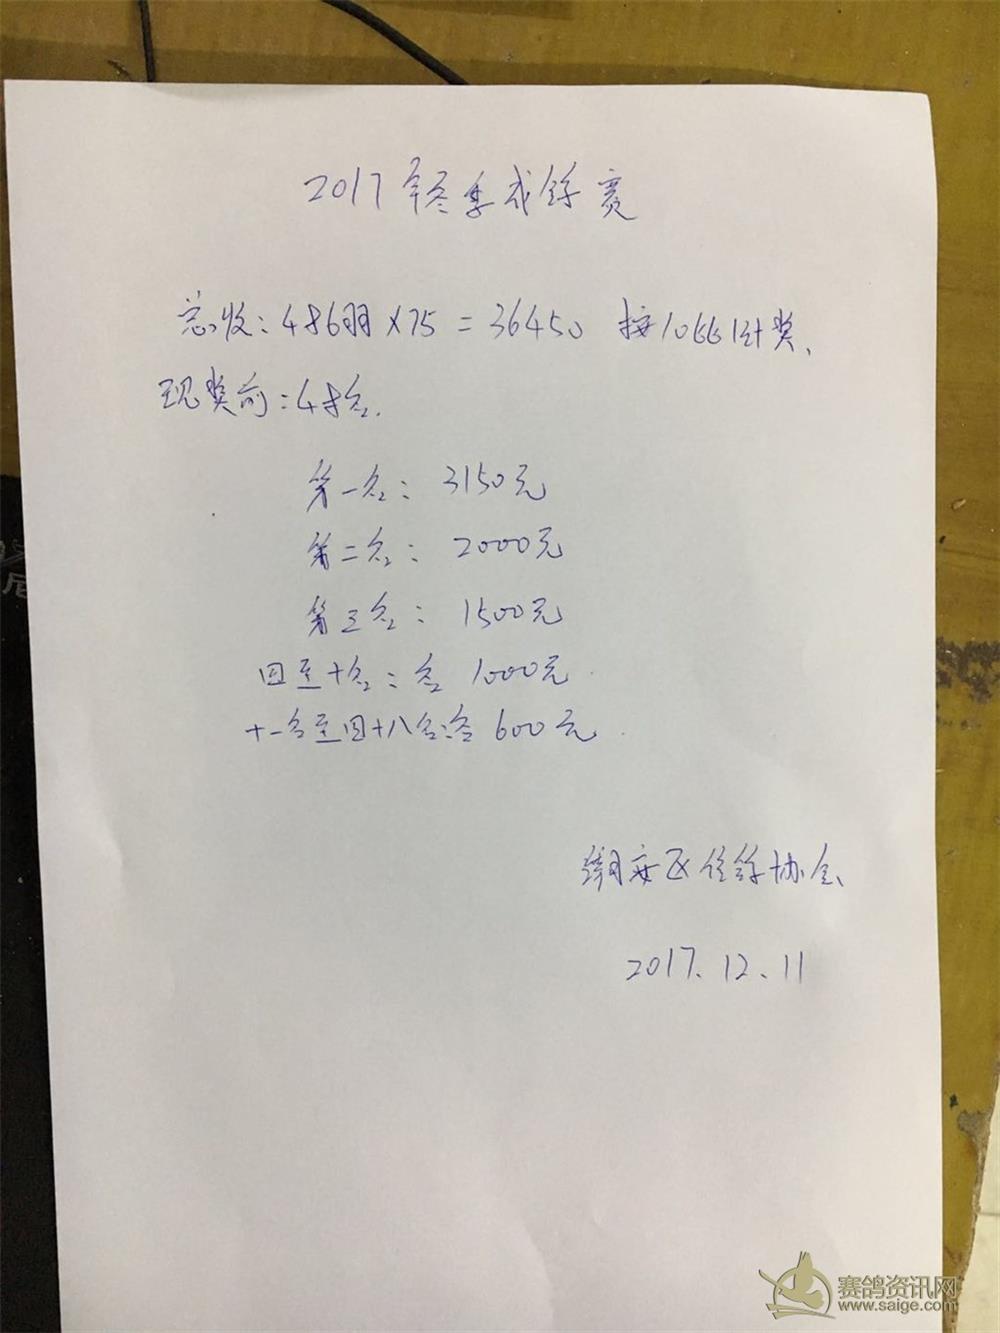 2017年冬季成鸽赛
总收:486羽×75=36450 按106%计奖、
现奖前:48名.
第一名: 3150元
第二名: 2000元
第三名: 1500元
四至十名:名 1000元
十一名至四十八名:名 600元
潮安区信鸽协会
2017.12.11
尼
赛鸽资讯网
www.saige.com